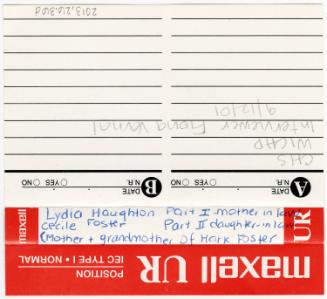 Lydia Haughton Part I mother in law
Cecile Foster Part II daughter-in-law
(Mother + grandmother of Mark Foster
maxell UR
POSITION
IEC TYPE I • NORMAL
maxell
UR
A
DATE
N.R. YES NO
B
DATE
N.R. YES NO
CHS
WICHP
9/12/01
Interviewer Fiona